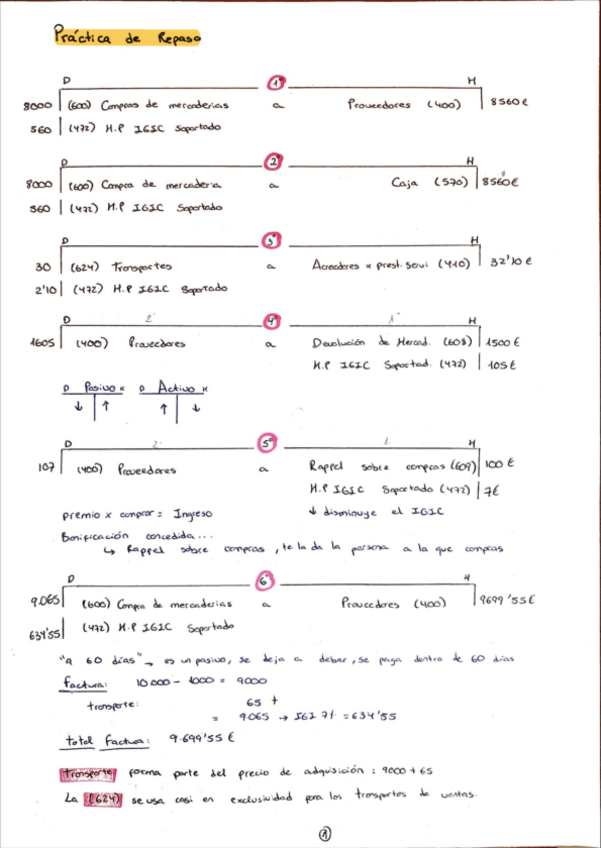 Práctica de Repaso
D 1º H
8000 (600) Compras de mercaderías a Proveedores (400) 8560€
560 (472) H.P IGIC Soportado
D 2º H
8000 (600) Compra de mercadería a Caja (570) 8560€
560 (472) H.P IGIC Soportado
D 3º H
30 (624) Transportes a Acreedores x prest. servi (410) 32'10 €
2'10 (472) H.P IGIC Soportado
D 2º 4º 1º H
1605 (400) Proveedores a Devolución de Mercad. (608) 1500€
H.P IGIC Soportad. (472) 105€
D Pasivo H D Activo H
↓ ↑ ↑ ↓
D 2. 5º 1. H
107 (400) Proveedores a Rappel sobre compras (609) 100 €
H.P IGIC Soportado (472) 7€
premio x comprar = Ingreso ↓ disminuye el IGIC
Bonificación concedida...
↳ Rappel sobre compras, te la da la persona a la que compras
D 6º H
9.065 (600) Compra de mercaderías a Proveedores (400) 9699'55€
634'55 (472) H.P IGIC Soportado
"a 60 días" → es un pasivo, se deja a deber, se paga dentro de 60 días
factura: 10.000 - 1000 = 9000
transporte: 65 +
= 9.065 → IGI 7% = 634'55
total factura: 9.699'55 €
Transporte forma parte del precio de adquisición: 9000 + 65
La (624) se usa casi en exclusividad para los transportes de ventas.
1